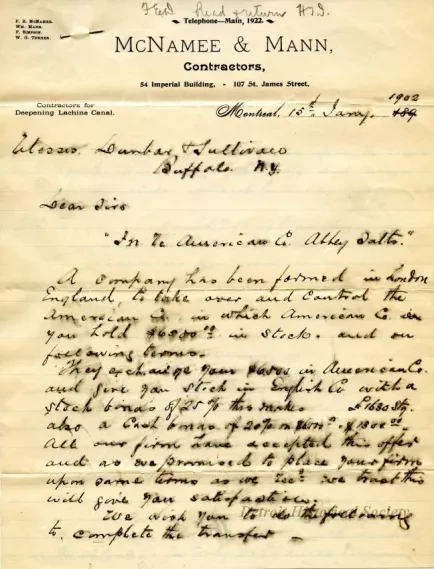 Feed Read & return H.D.
F. B. McNAMEE.
WM. MANN.
F. SIMPSON.
W. G. TURNER.
Telephone—Main, 1922.
McNAMEE & MANN,
Contractors,
54 Imperial Building, - 107 St. James Street,
Contractors for
Deepening Lachine Canal.
1902
Montreal, 15th Jany. 189
Messrs. Dunbar & Sullivan
Buffalo. N.Y.
Dear Sirs
"In Re American Co. Abbey Salts."
A Company has been formed in London
England, to take over and control the
American Co. in which American Co.
you hold $6500.00 in stock. and on
following terms.
They exchange your $6500 in American Co.
and give you stock in English Co with a
stock bonus of 25% this makes £1680 Stg.
also a Cash bonus of 20% on $6500. $1300.00
All our firm have accepted this offer
and as we promised to place your firm
upon same terms as we we trust this
will give you satisfaction.
We wish you to do the following
to complete the transfer –
Detroit Historical Society